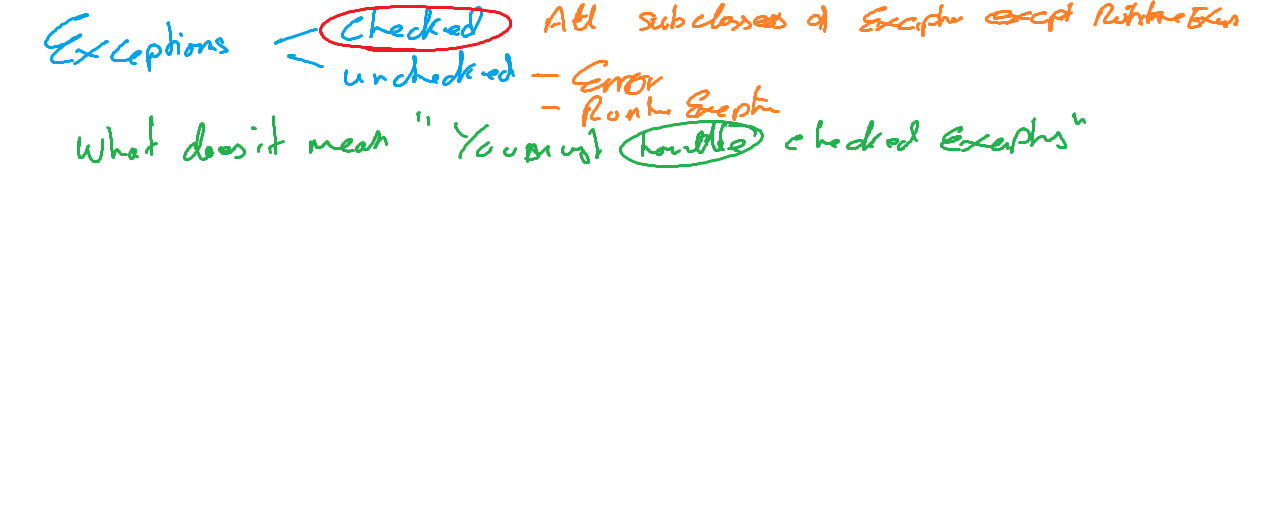 Exceptions checked All subclasses of Exception except RuntimeExcn
unchecked - Error
- Runtime Exception
What does it mean "You must handle checked Exceptions"